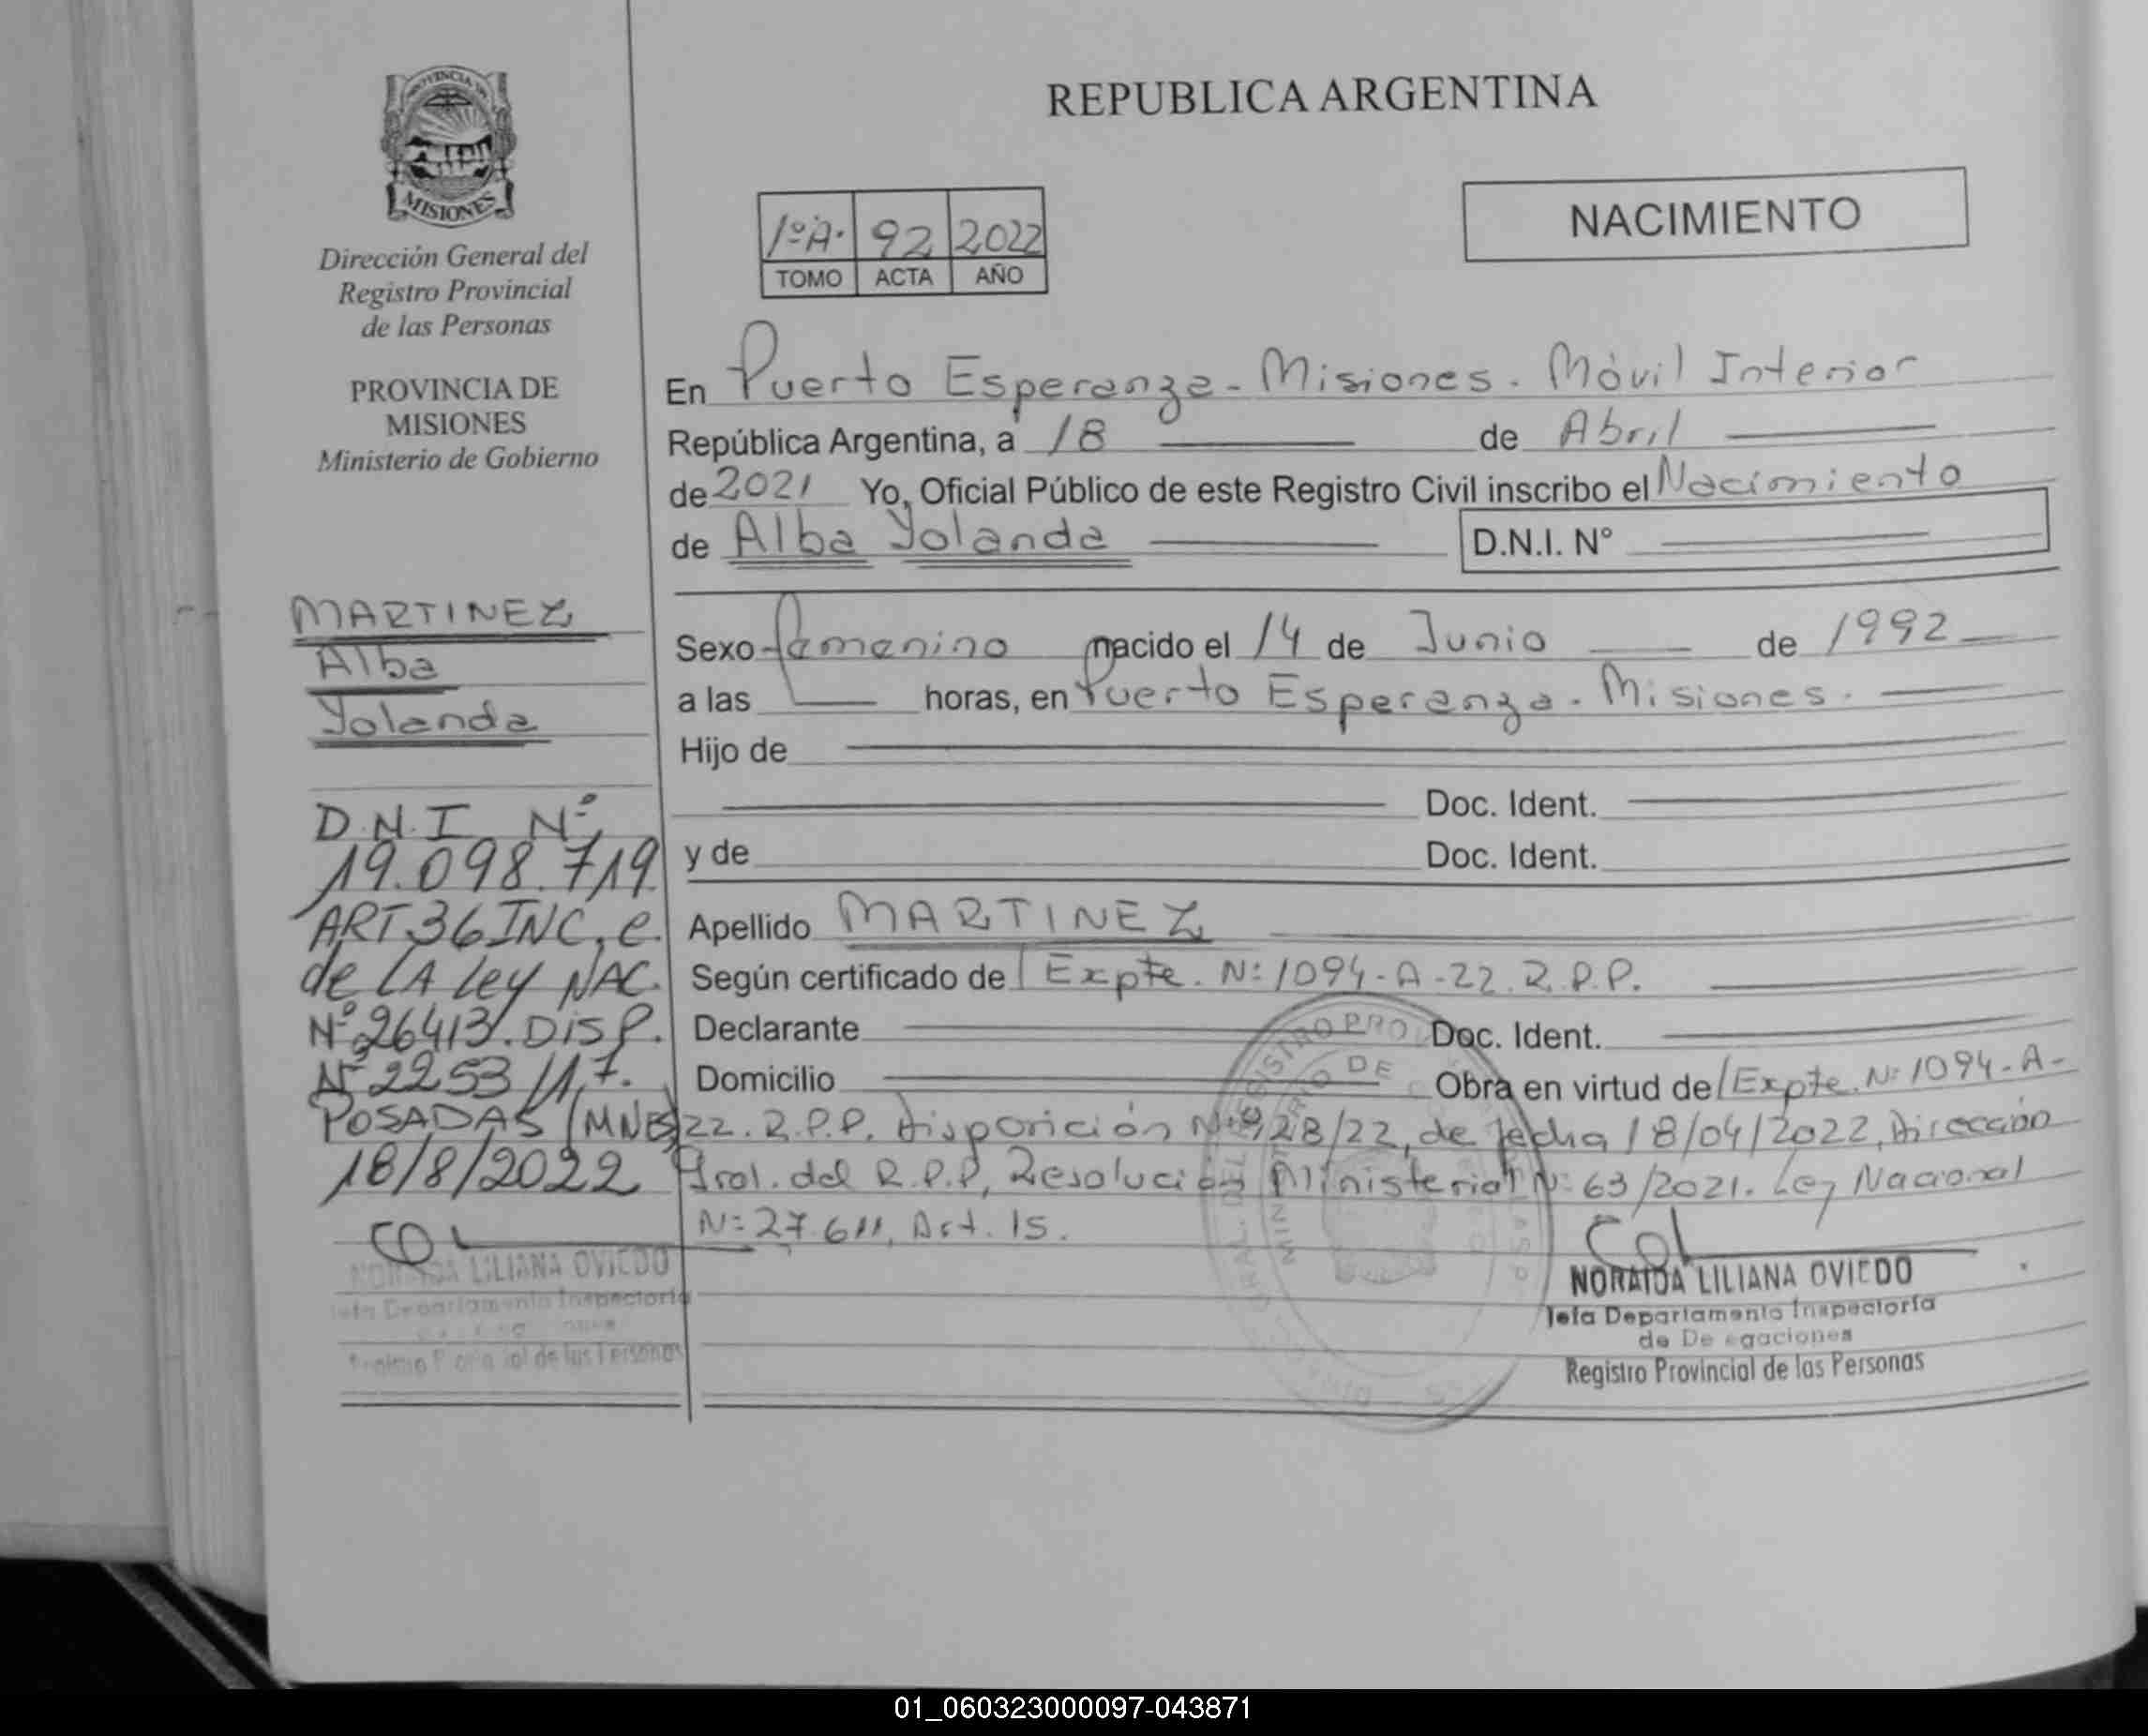 PROVINCIA DE
MISIONES
Dirección General del
Registro Provincial
de las Personas
PROVINCIA DE
MISIONES
Ministerio de Gobierno
MARTINEZ
Alba
Yolanda
D.N.I. Nº
19.098.719
ART 36 INC, e.
de LA Ley NAC.
Nº 26413. DISP.
Nº 2253/17.
POSADAS (MNES)
18/8/2022
LILIANA OVIEDO
Departamento Inspectoría
de las Personas
REPUBLICA ARGENTINA
1º A. 92 2022
TOMO ACTA AÑO
NACIMIENTO
En Puerto Esperanza - Misiones. Móvil Interior
República Argentina, a 18 de Abril
de 2021 Yo, Oficial Público de este Registro Civil inscribo el Nacimiento
de Alba Yolanda D.N.I. N°
Sexo femenino nacido el 14 de Junio de 1992
a las horas, en Puerto Esperanza. Misiones.
Hijo de
Doc. Ident.
y de Doc. Ident.
Apellido MARTINEZ
Según certificado de Expte. Nº 1094-A-22. R.P.P.
Declarante Doc. Ident.
Domicilio Obra en virtud de Expte. Nº 1094-A-
22. R.P.P. Disposición Nº 928/22, de fecha 18/04/2022, Dirección
Gral. del R.P.P, Resolución Ministerial Nº 63/2021. Ley Nacional
Nº 27.611, Art. 15.
NORAIDA LILIANA OVIEDO
Jefa Departamento Inspectoría
de Delegaciones
Registro Provincial de las Personas
01_060323000097-043871